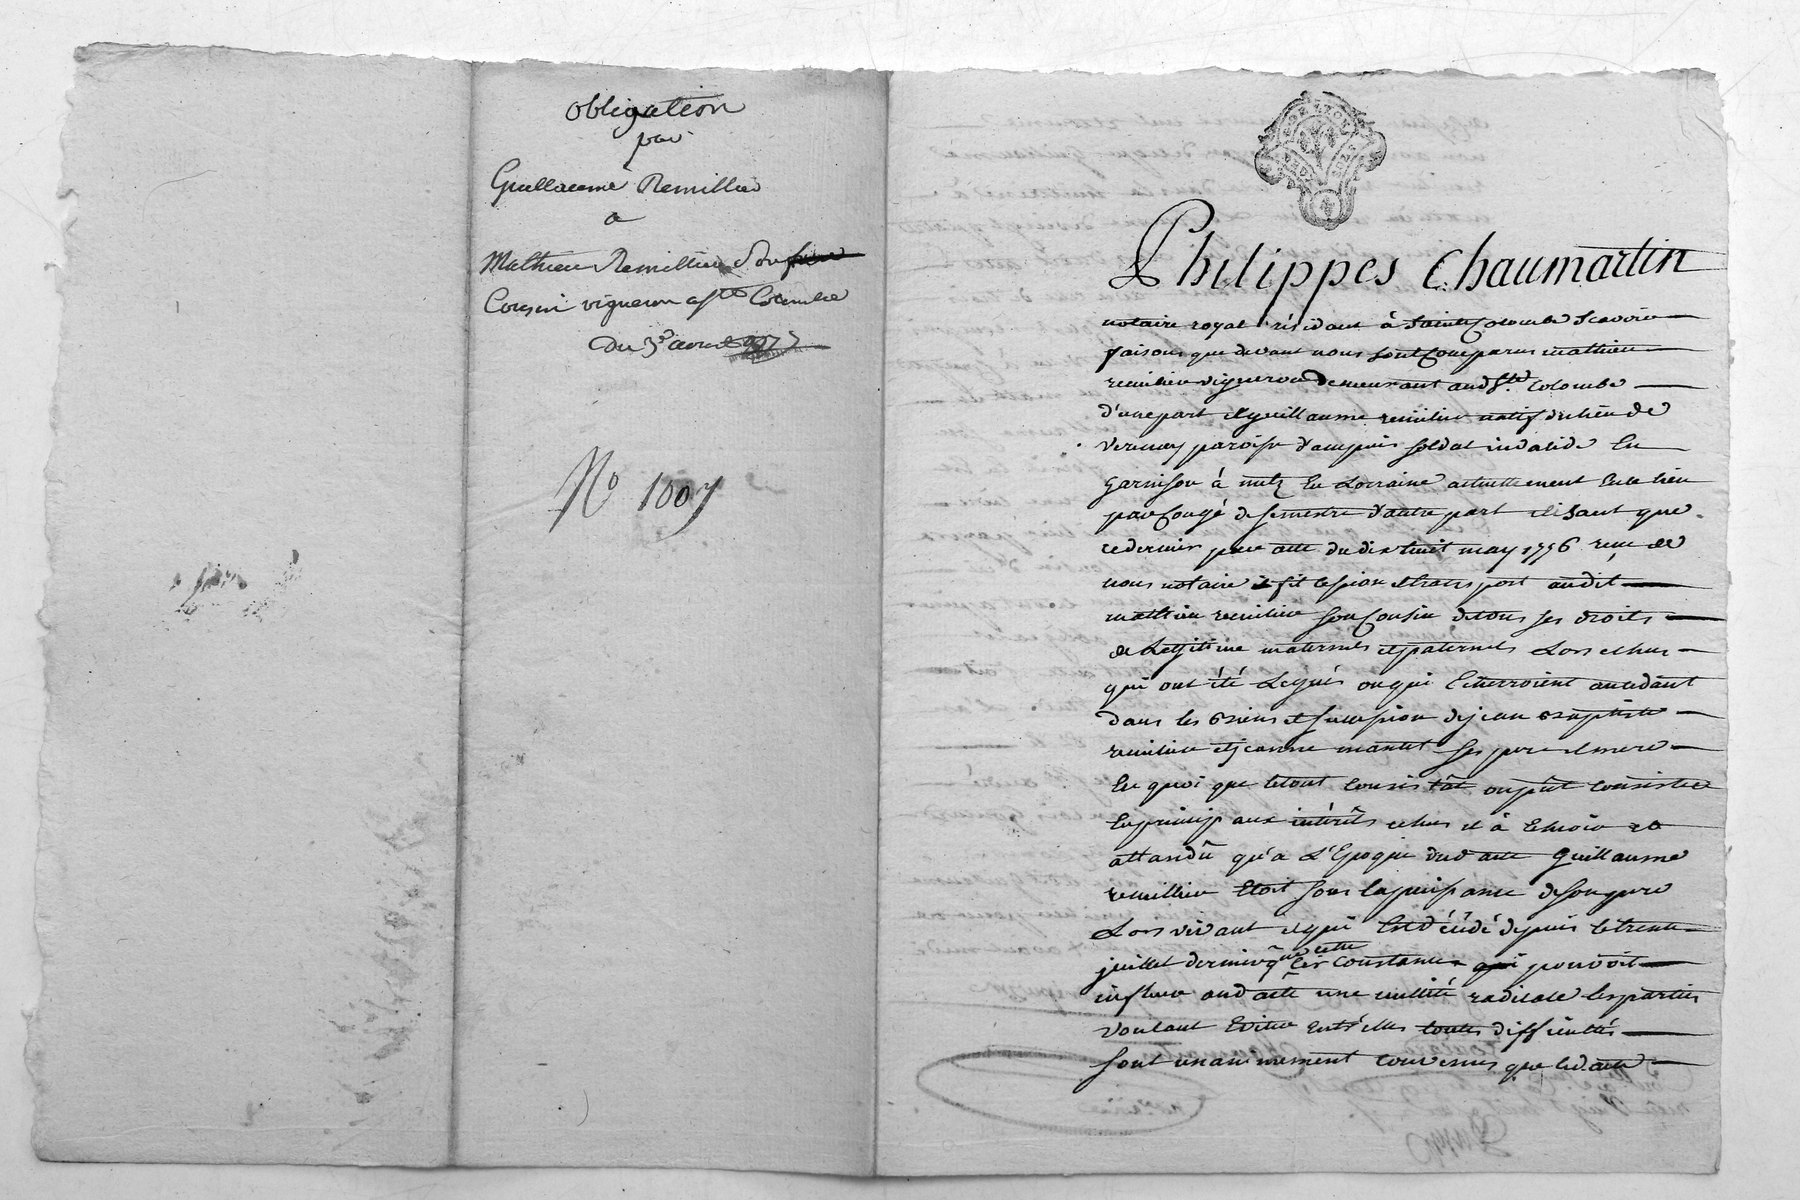 Obligation
par
Guillaume Remillier
a
Mathieu Remillier Son frere
Cousin vigneron a Ste Colombe
Du 3e avril 1777
No 1007
Philippes Chaumartin
notaire royal résidant à Sainte Colombe Scavoir
faisons que devant nous sont Comparus mathieu
remilier vigneron demeurant aud Ste Colombe
d'une part et guillaume remilier natif du lieu de
verenay paroisse d'ampuis soldat invalide En
garnison à metz En Lorraine actuellement en ce lieu
par Congé de semestre d'autre part disant que
ce dernier par acte du dix huit may 1776 reçu de
nous notaire fit cession et transport audit
mathieu remilier son Cousin de tous ses droits
de Legitime maternels et paternels Lors echus
qui ont été Legués ou qui Echerroient audant
dans les Biens et succession de jean Baptiste
remilier et jeanne mantel ses pere et mere
En quoi que le tout Consistât ou put Consister
En principaux intérêts echus et à Echoir et
attandû qu'a L'Epoque dud acte Guillaume
remillier Etoit sous la puissance de son pere
Lors vivant et qui Est décédé depuis le trente
juillet dernier que cette Circonstance qui pouvoit
influer aud acte une nullité radicale les parties
voulant Eviter entr'elles toutes difficultés
sont unanimement Convenus que led acte